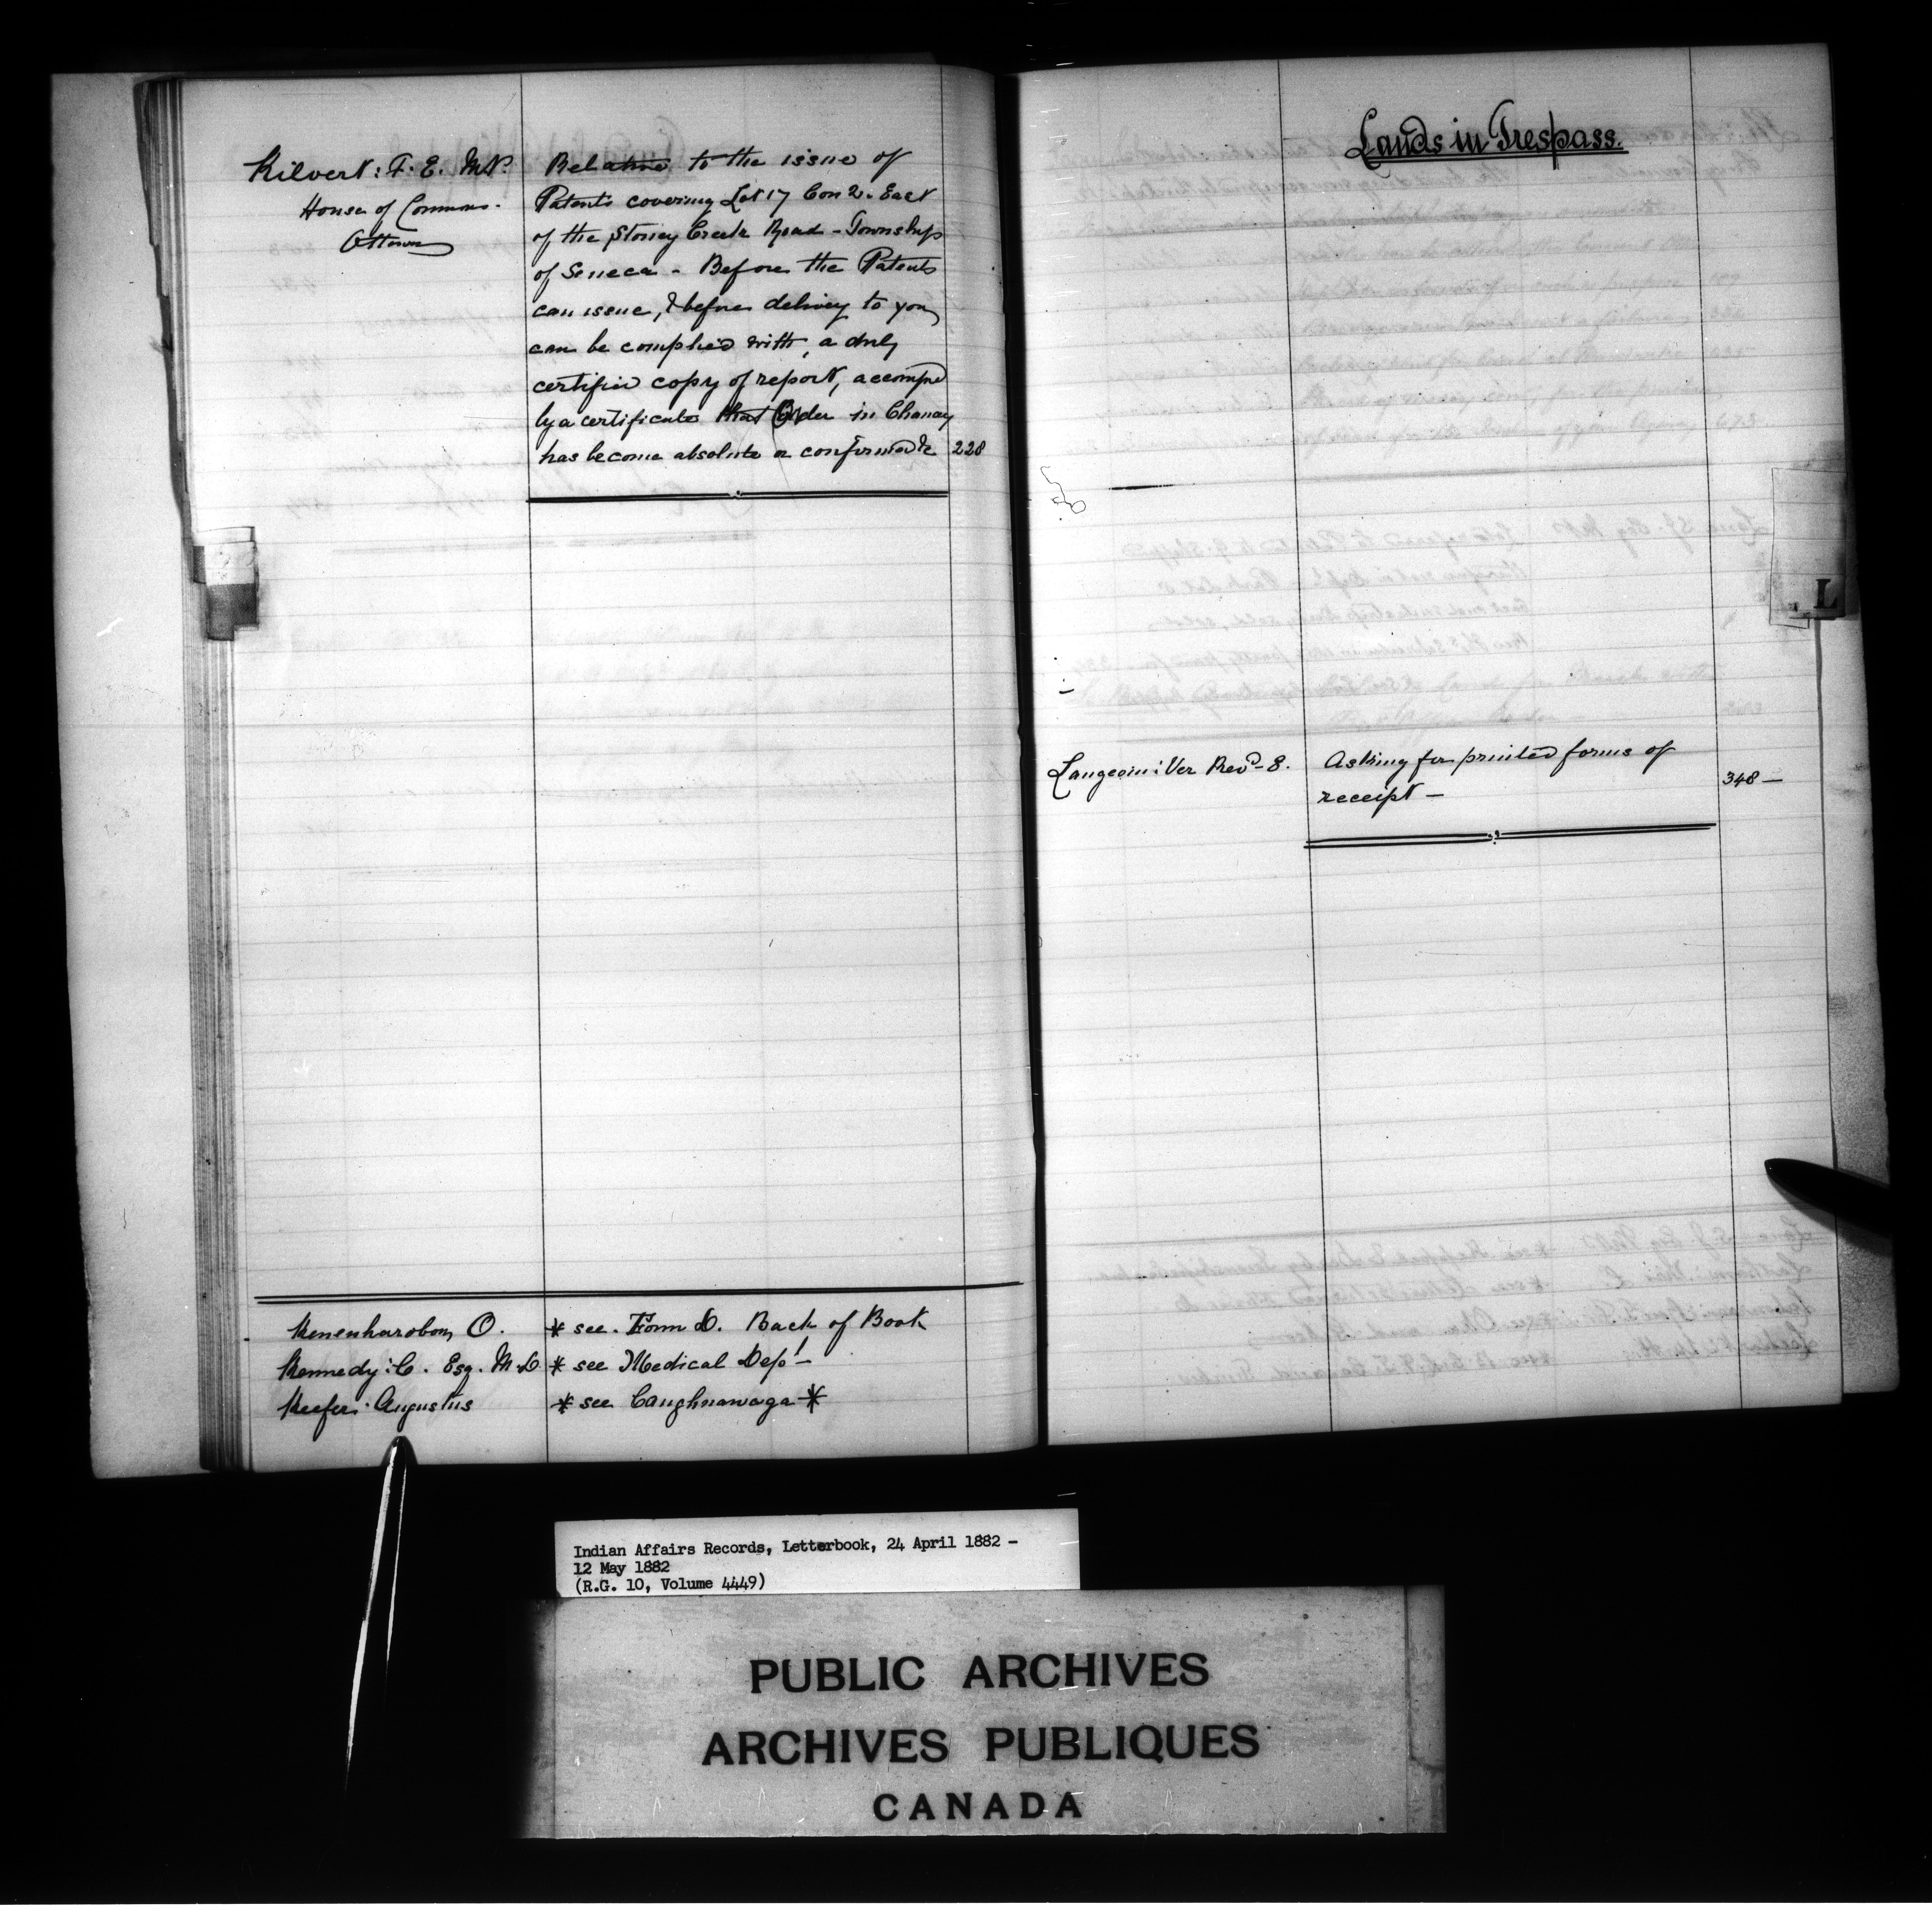 Kilvert: F. E. M.P.
House of Commons.
Ottawa
Relative to the issue of
Patents covering Lot 17 Con 2. East
of the Stoney Creek Road - Township
of Seneca - Before the Patents
can issue, & before delivery to you
can be complied with, a duly
certified copy of report, accompd
by a certificate that Order in Chancy
has become absolute or confirmed &c 228
O. * see. Form D. Back of Book
Kennedy: C. Esq. M.D * see Medical Dept -
Keefer: Augustus * see Caughnawaga *
Lands in Trespass.
Langevin: Ver Revd - E.
Asking for printed forms of
receipt - 348 -
L
Indian Affairs Records, Letterbook, 24 April 1882 -
12 May 1882
(R.G. 10, Volume 4449)
PUBLIC ARCHIVES
ARCHIVES PUBLIQUES
CANADA